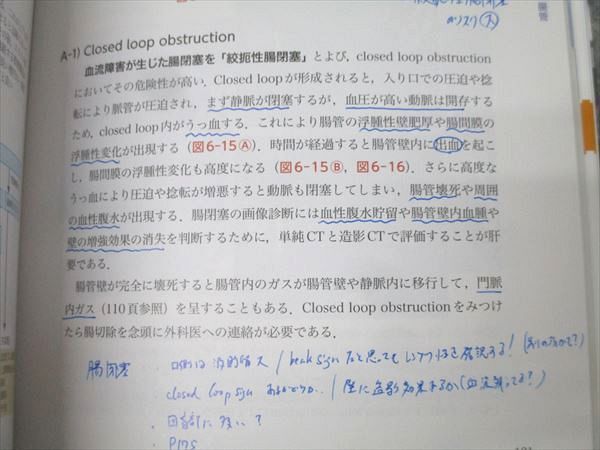 がリスク(大)
腸管
A-1) Closed loop obstruction
血流障害が生じた腸閉塞を「絞扼性腸閉塞」とよび,closed loop obstruction
においてその危険性が高い.Closed loopが形成されると,入り口での圧迫や捻
転により脈管が圧迫され,まず静脈が閉塞するが,血圧が高い動脈は開存する
ため,closed loop内がうっ血する.これにより腸管の浮腫性壁肥厚や腸間膜の
浮腫性変化が出現する(図6-15Ⓐ).時間が経過すると腸管壁内に出血を起こ
し,腸間膜の浮腫性変化も高度になる(図6-15Ⓑ,図6-16).さらに高度な
うっ血により圧迫や捻転が増悪すると動脈も閉塞してしまい,腸管壊死や周囲
の血性腹水が出現する.腸閉塞の画像診断には血性腹水貯留や腸管壁内血腫や
壁の増強効果の消失を判断するために,単純CTと造影CTで評価することが肝
要である.
腸管壁が完全に壊死すると腸管内のガスが腸管壁や静脈内に移行して,門脈
内ガス(110頁参照)を呈することもある.Closed loop obstructionをみつけ
たら腸切除を念頭に外科医への連絡が必要である.
腸閉塞 ・口側は消化管 / beak sign だと思っても 確認する!
closed loop sign あるかどうか. / 壁に造影効果あるか(血流 ってる?)
・回音部に多い?